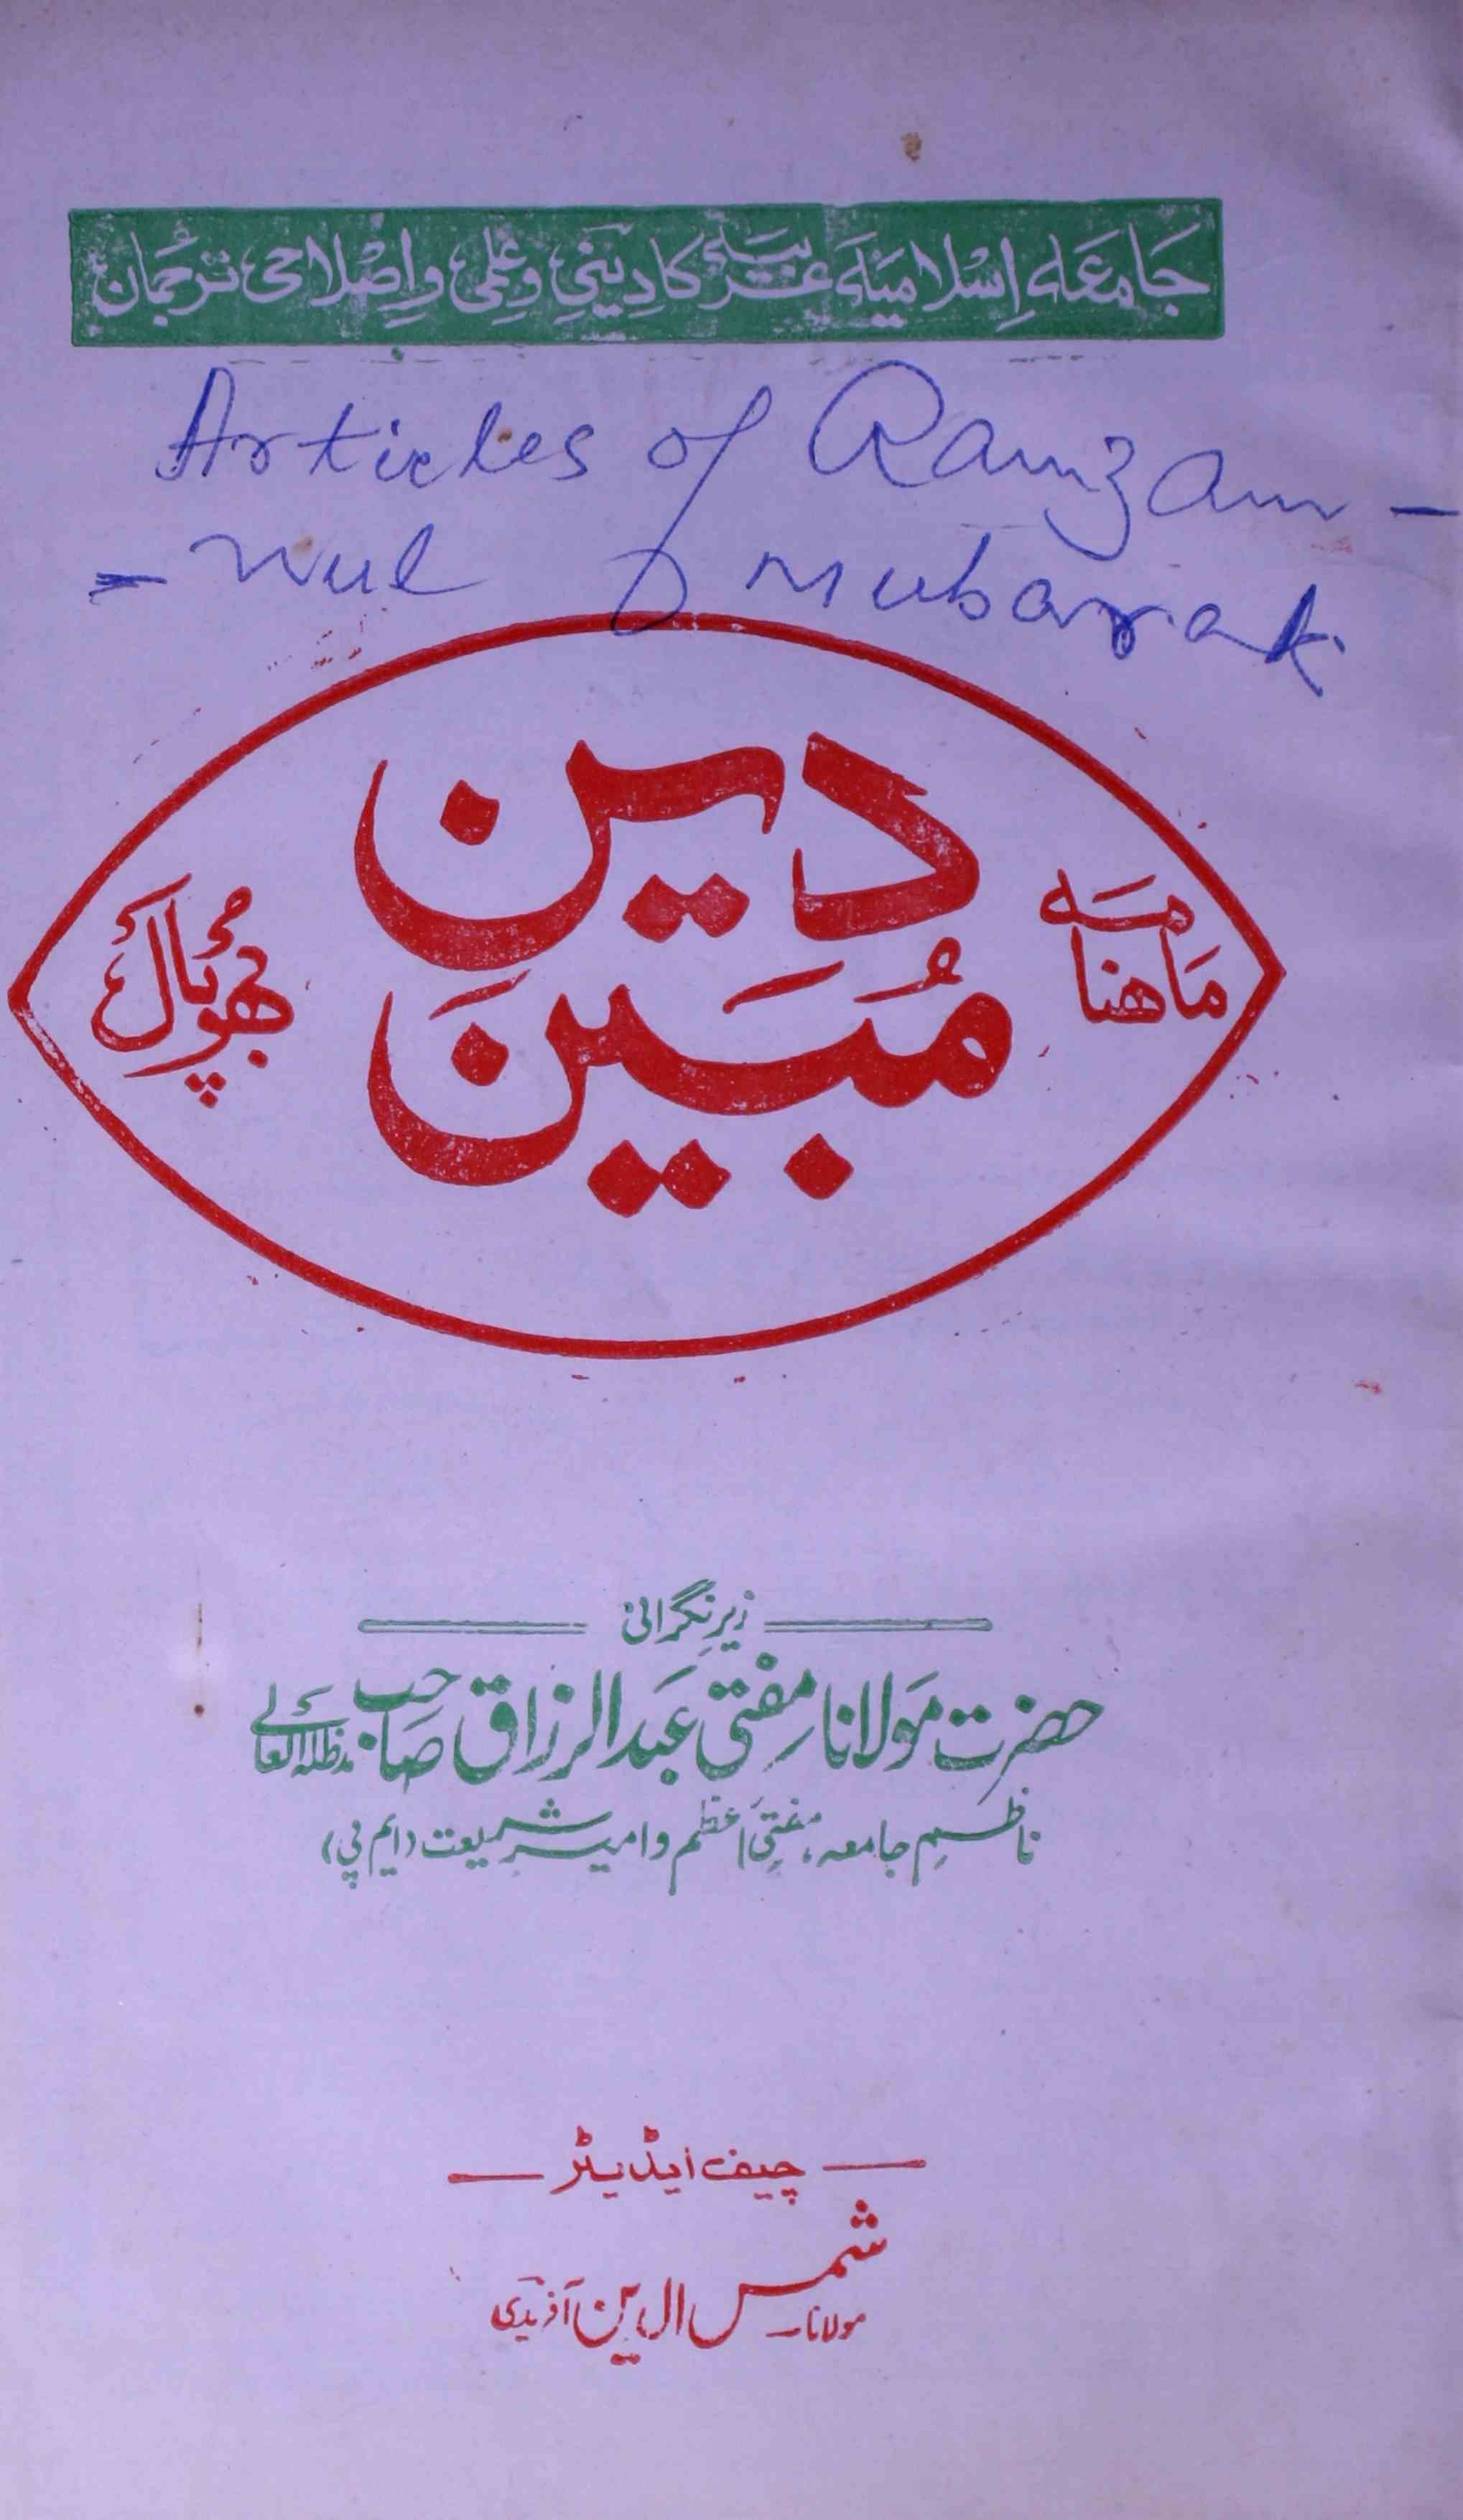 جَامعَہ اِسْلامیَہ عَربیَہ کا دِینیِ وعِلمیِ واِصْلاحیِ ترجُمان
Articles of Ramzan -
- nul mubarak
ماهنامہ
دین
مُبَین
بھُوپال
زیرِ نِگرانی
حضرت مَولانا مِفتی عَبدالرزاق صَاحب مدظلہ العالی
ناظمِ جامعہ، مفتیِ اعظم وامیر شریعت (ایم پی)
چیف ایڈیٹر
مولانا شمس الدین آفریدی